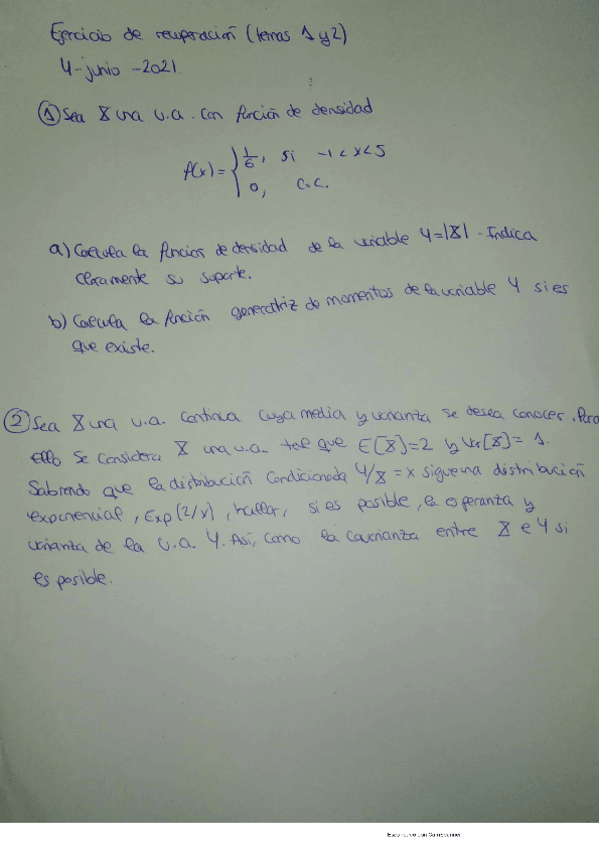 Ejercicio de recuperación (temas 1 y 2)
4-junio-2021
① Sea X una v.a. con función de densidad
f(x) = { 1/6, si -1 < x < 5
0, c.c.
a) Calcula la función de densidad de la variable Y=|X|. Indica
claramente su soporte.
b) Calcula la función generatriz de momentos de la variable Y si es
que existe.
② Sea X una v.a. continua cuya media y varianza se desea conocer. Para
ello se considera X una v.a. tal que E[X]=2 y Var[X]=1.
Sabiendo que la distribución condicionada Y/X=x sigue una distribución
exponencial, Exp(2/x), hallar, si es posible, la esperanza y
varianza de la v.a. Y. Así, como la covarianza entre X e Y si
es posible.